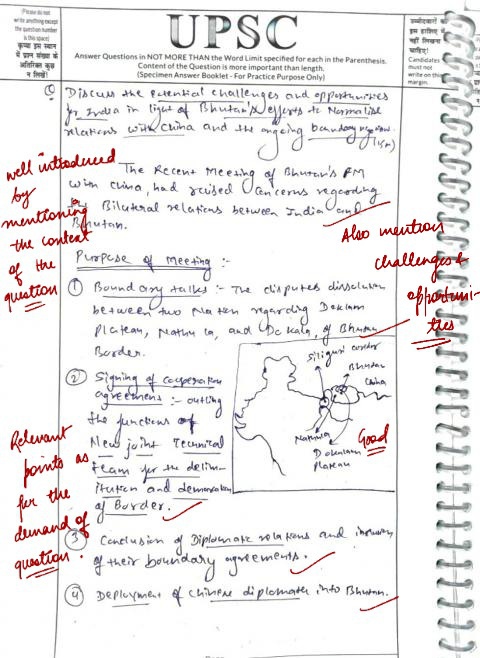 (Please do not
write anything except
the question number
in this space)
कृपया इस स्थान
में प्रश्न संख्या के
अतिरिक्त कुछ
न लिखें।
UPSC
Answer Questions in NOT MORE THAN the Word Limit specified for each in the Parenthesis.
Content of the Question is more important than length.
(Specimen Answer Booklet - For Practice Purpose Only)
उम्मीदवारों को
इस हाशिए में
नहीं लिखना
चाहिए।
Candidates
must not
write on this
margin.
Q Discuss the potential challenges and opportunities
for India in light of Bhutan's efforts to Normalise
relations with China and the ongoing boundary
well introduced
by
mentioning
the context
of the
question
The Recent Meeting of Bhutan's FM
with China, had raised Concerns regarding
Bilateral relations between India and
Bhutan.
Also mention
challenges &
opportuni-
ties
Purpose of Meeting :-
① Boundary talks :- The disputes dissolution
between two Nation regarding Doklam
Plateau, Nathu la, and Dokala, of Bhutan
Border.
② Signing of cooperation
agreements :- outling
the functions of
New joint Technical
team for the delim-
itution and demarcation
of Border.
Siliguri coridor
Bhutan
China
Nathula
Dokalam
Plateau
Good
Relevant
points as
per the
demand of
question.
③ Conclusion of Diplomatic relations and inclusion
of their boundary agreements.
④ Deployment of Chinese diplomats into Bhutan.